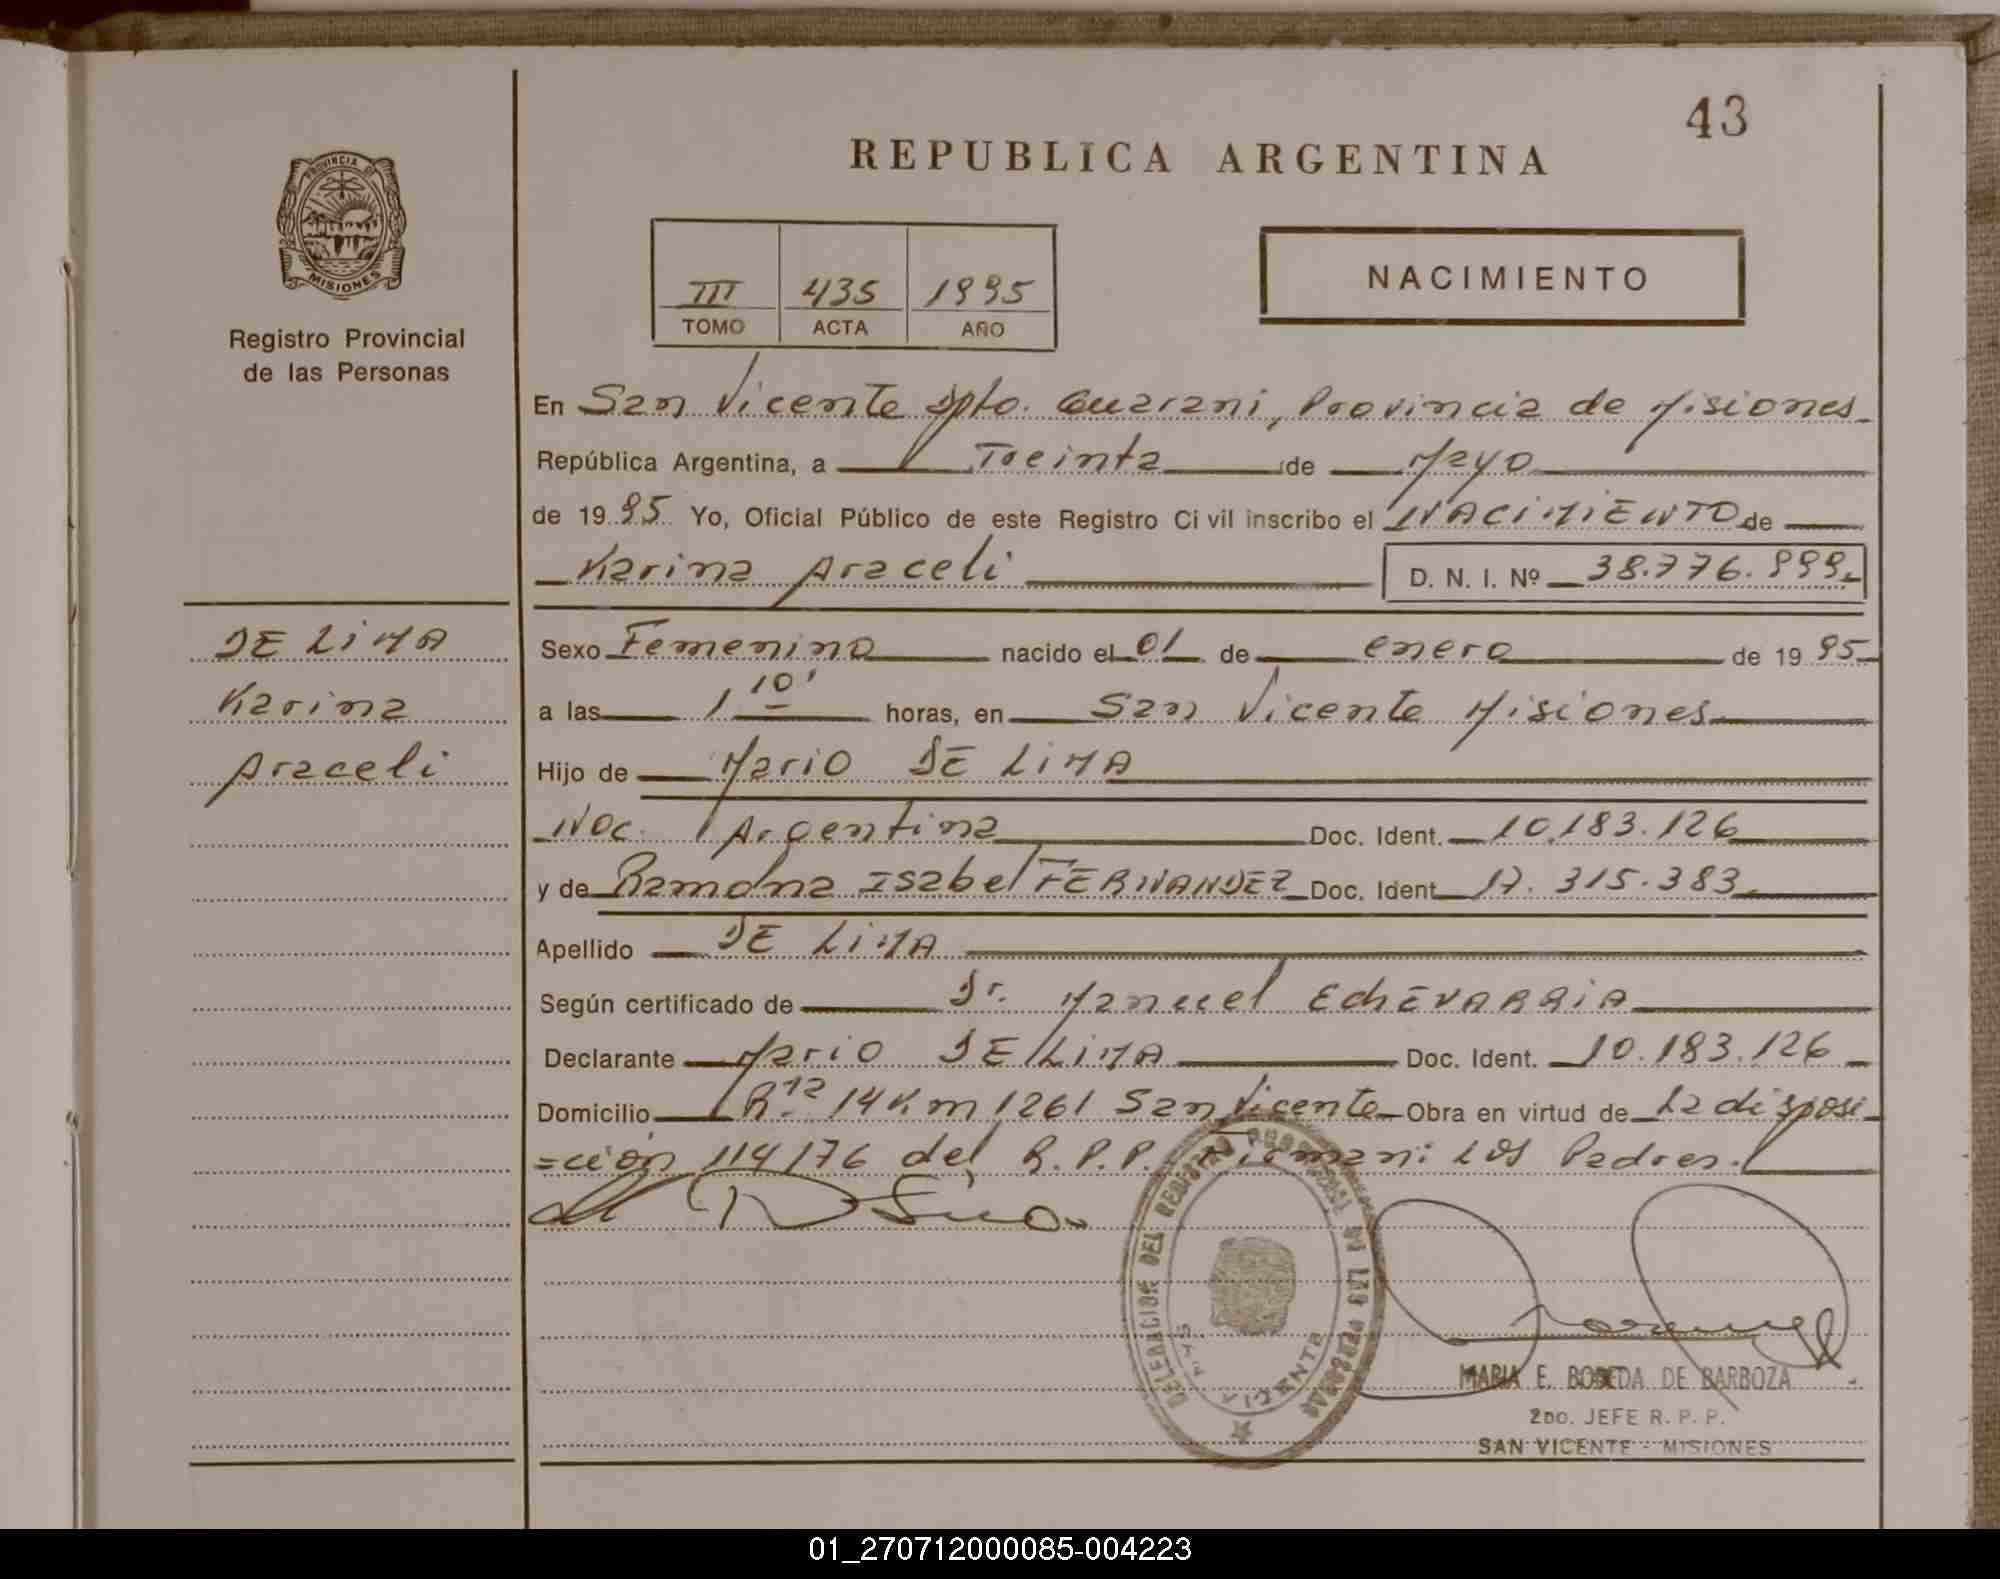 43
REPUBLICA ARGENTINA
PROVINCIA DE
MISIONES
Registro Provincial
de las Personas
III 435 1995
TOMO ACTA AÑO
NACIMIENTO
En San Vicente Dpto. Guarani, Provincia de Misiones
República Argentina, a Treinta de Mayo
de 1995 Yo, Oficial Público de este Registro Civil inscribo el NACIMIENTO de
Karina Araceli D. N. I. Nº 38.776.999
DE LIMA
Karina
Araceli
Sexo Femenino nacido el 01 de enero de 1995
a las 1 10' horas, en San Vicente Misiones
Hijo de Mario DE LIMA
Nac. Argentina Doc. Ident. 10.183.126
y de Ramona Isabel FERNANDEZ Doc. Ident 17.315.383
Apellido DE LIMA
Según certificado de Dr. Manuel EchEVARRiA
Declarante Mario DE LIMA Doc. Ident. 10.183.126
Domicilio R. 14 Km 1261 San Vicente Obra en virtud de La disposi
=cion 114/76 del R.P.P. Firman: Los Padres.
DELEGACION DEL REGISTRO PROVINCIAL DE LAS PERSONAS
SAN VICENTE
MARIA E. BOBEDA DE BARBOZA
2DO. JEFE R. P. P.
SAN VICENTE - MISIONES
01_270712000085-004223